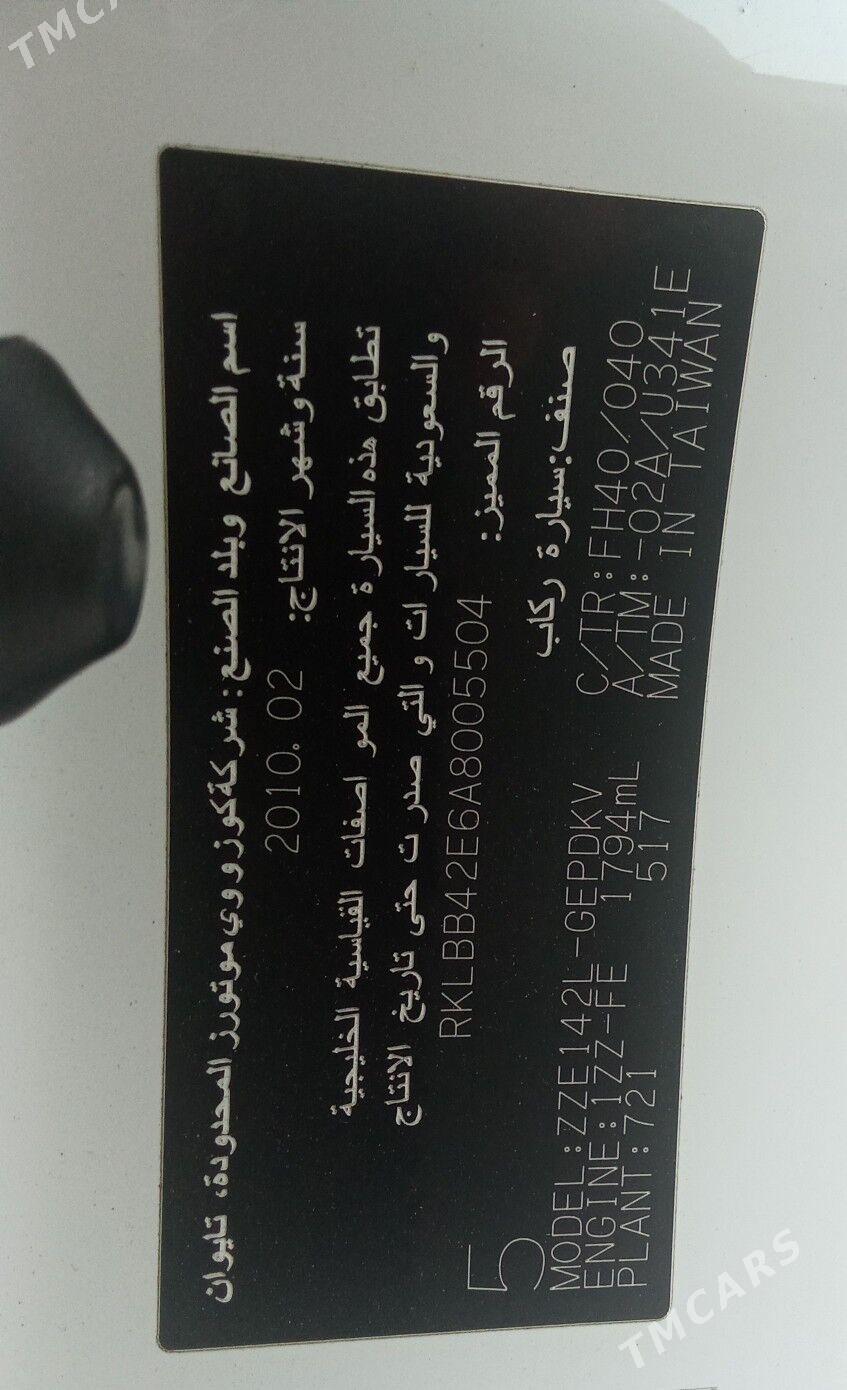 اسم الصانع وبلد الصنع: شركة كوزووي موتورز المحدودة، تايوان
سنة وشهر الانتاج: 2010.02
تطابق هذه السيارة جميع المواصفات القياسية الخليجية
والسعودية للسيارات والتي صدرت حتى تاريخ الانتاج
الرقم المميز: RKLBB42E6A8005504
صنف: سيارة ركاب
5
MODEL:ZZE142L-GEPDKV C/TR:FH40/040
ENGINE:1ZZ-FE 1794mL A/TM:-02A/U341E
PLANT:721 517 MADE IN TAIWAN
TMCARS
TMCA